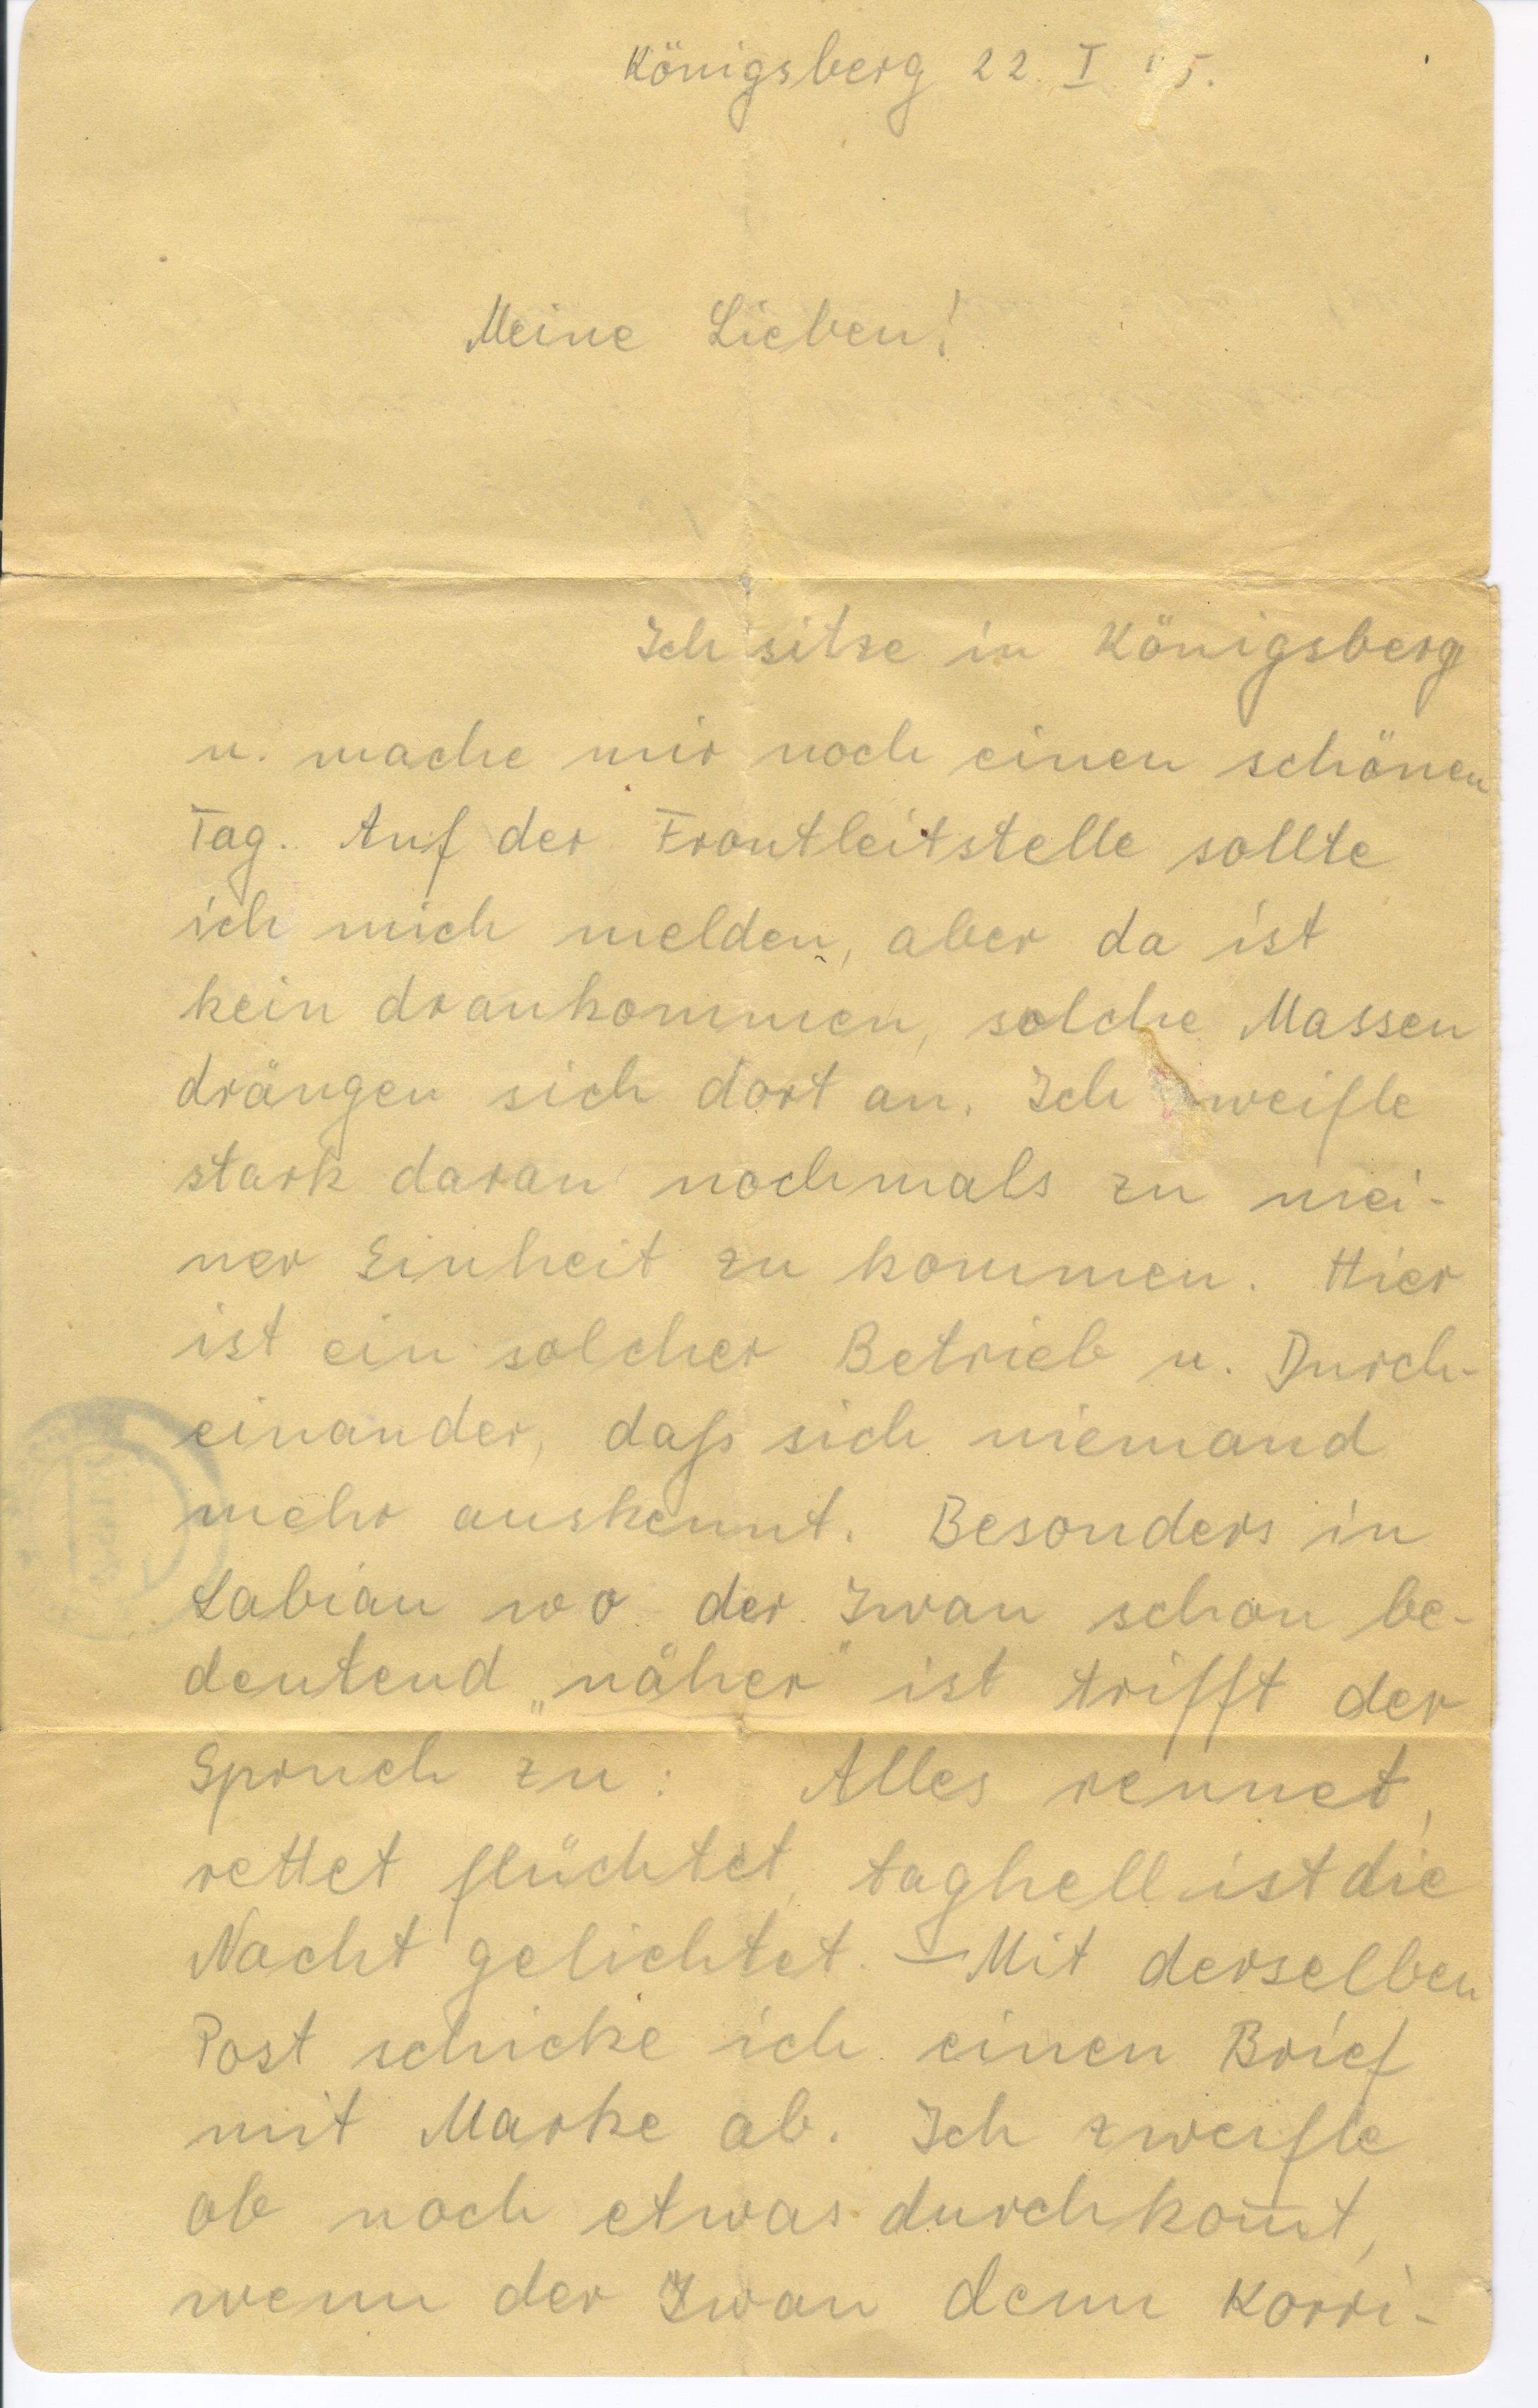 Königsberg 22. I 5.
Meine Lieben!
Ich sitze in Königsberg
u. mache mir noch einen schönen
Tag. Auf der Frontleitstelle sollte
ich mich melden, aber da ist
kein drankommen, solche Massen
drängen sich dort an. Ich zweifle
stark daran nochmals zu mei-
ner Einheit zu kommen. Hier
ist ein solcher Betrieb u. Durch-
einander, daß sich niemand
mehr auskennt. Besonders in
Labiau wo der Iwan schon be-
deutend „näher" ist trifft der
Spruch zu: Alles rennet,
rettet flüchtet, taghell ist die
Nacht gelichtet. — Mit derselben
Post schicke ich einen Brief
mit Marke ab. Ich zweifle
ob noch etwas durchkom̅t,
wenn der Iwan denn Korri-